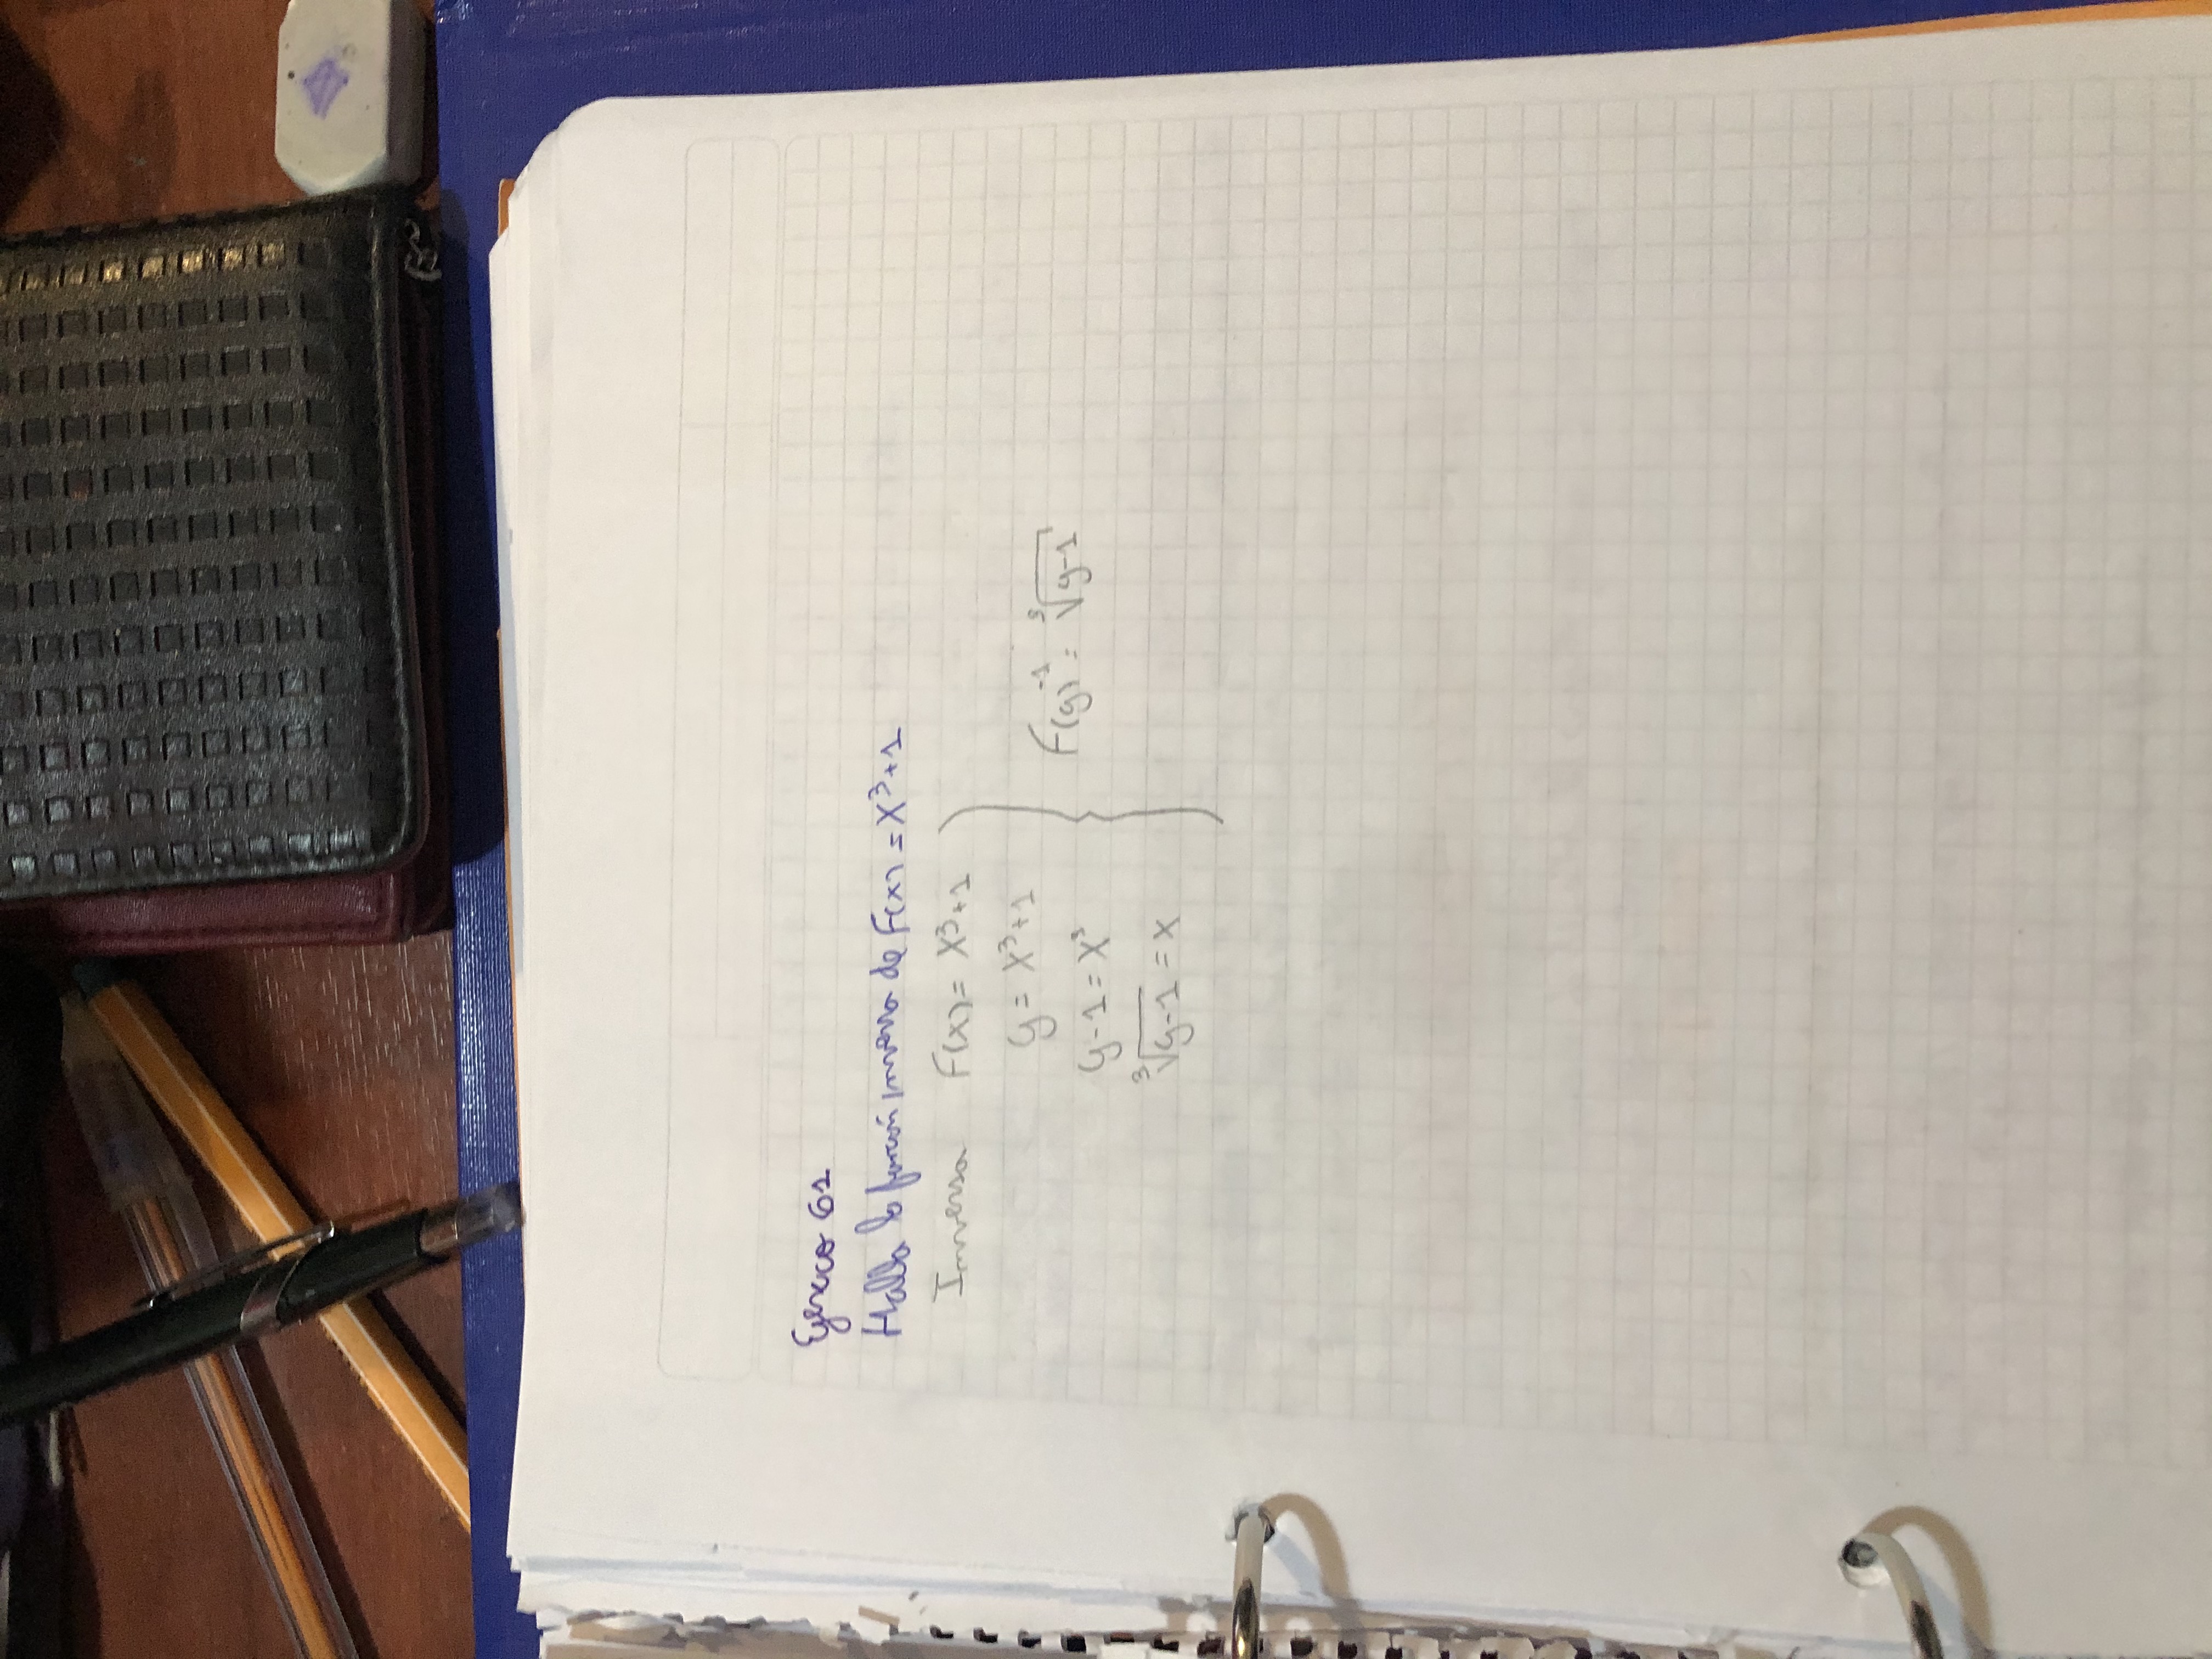 Ejercicio 61
Halla la función inversa de F(x) = x³+1
Inversa F(x) = x³+1
y = x³+1
y-1 = x³
³√y-1 = x
F(y)⁻¹ = ³√y-1